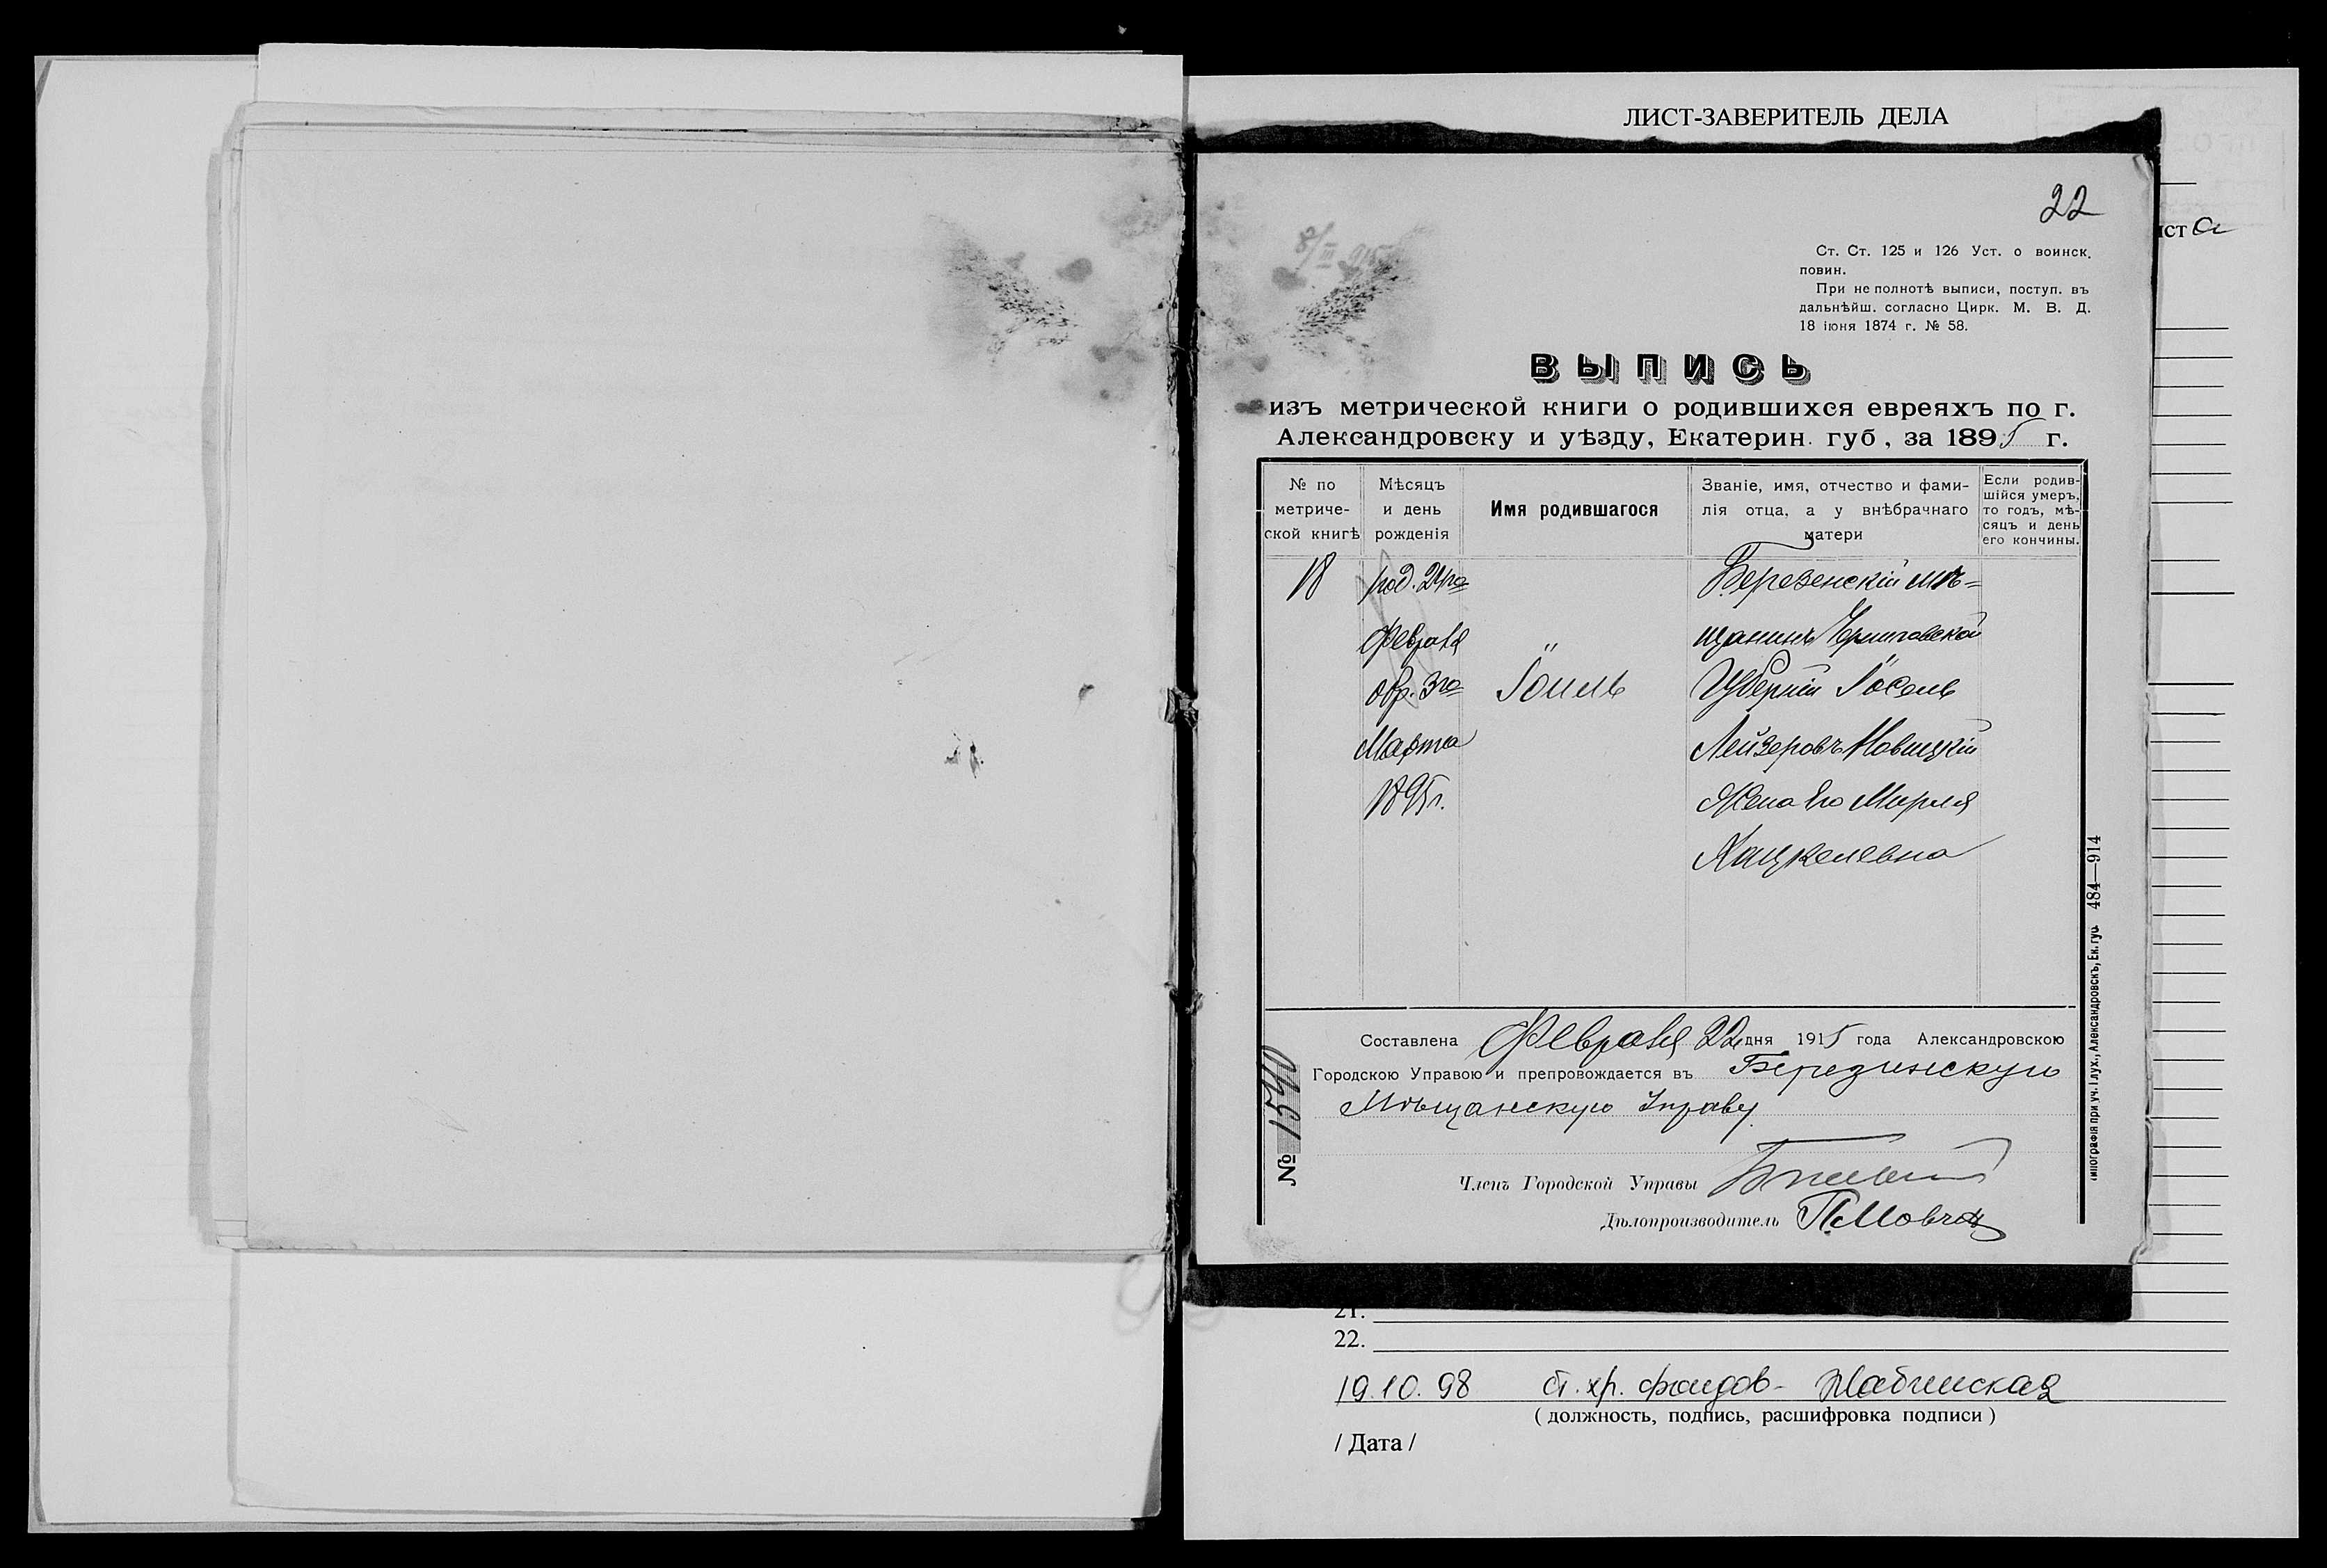 ЛИСТ-ЗАВЕРИТЕЛЬ ДЕЛА
22
8/III 915
Ст. Ст. 125 и 126 Уст. о воинск.
повин.
При не полнотѣ выписи, поступ. въ
дальнѣйш. согласно Цирк. М. В. Д.
18 іюня 1874 г. № 58.
ВЫПИСЬ
изъ метрической книги о родившихся евреяхъ по г.
Александровску и уѣзду, Екатерин. губ, за 1895 г.
№ по метриче-ской книгѣ
Мѣсяцъ и день рожденія
Имя родившагося
Званіе, имя, отчество и фами-
лія отца, а у внѣбрачнаго
матери
Если родив-
шійся умеръ,
то годъ, мѣ-
сяцъ и день
его кончины.
18
род. 24го
Февраля
обр. 3го
Марта
1895 г.
Іоиль
Березенскій мѣ=
щанинъ Черниговской
Губерніи Іосель
Лейзеровъ Новицкій
Жена его Мирля
Хацкелевна
Составлена Февраля 22 дня 1915 года Александровскою
Городскою Управою и препровождается въ Березинскую
Мѣщанскую Управу
№ 1540
Членъ Городской Управы
Дѣлопроизводитель
484—914
21.
22.
19.10.98 ст. хр. фондов-
( должность, подпись, расшифровка подписи )
/ Дата /